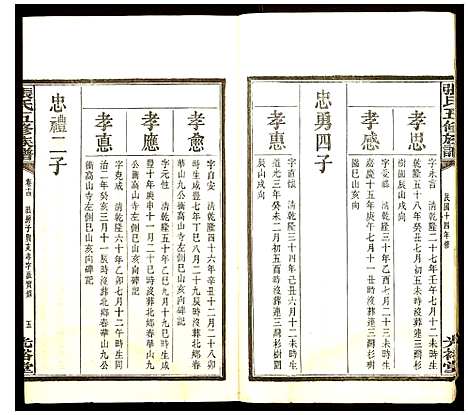 張氏五修族譜
民國十四年修
光裕堂
忠勇四子
孝思
字永言 清乾隆二十七年壬午七月十二未時生
乾隆五十八年癸丑七月初五未時沒葬連三灣杉
樹園辰山戌向
孝感
清乾隆三十年乙酉七月十二未時生
嘉慶十五年庚午七月十一丑時沒葬連三灣杉樹
園巳山亥向
孝惠
字直烜 清乾隆三十四年己丑
道光三年癸未二月初五酉時沒葬連三灣杉樹園
辰山戌向
忠禮二子
孝愈
字自安 清乾隆四十六年辛丑十二月二十八卯
時生咸豐七年丁巳八月二十九辰時沒葬北鄉春
華山九公衝高山寺左側巳山亥向碑記
孝應
字元性 清乾隆五十年乙巳七月二十亥時生咸
豐十年庚申十一月二十巳時沒葬北鄉春華山九公
衝高山寺左側巳山亥向碑記
孝悳
字克咸 清乾隆六十年乙卯七月十二午時生同
治三年三月十一辰時沒葬北鄉春華山九公
衝高山寺左側巳山亥向碑記
張氏五修族譜
五
光裕堂